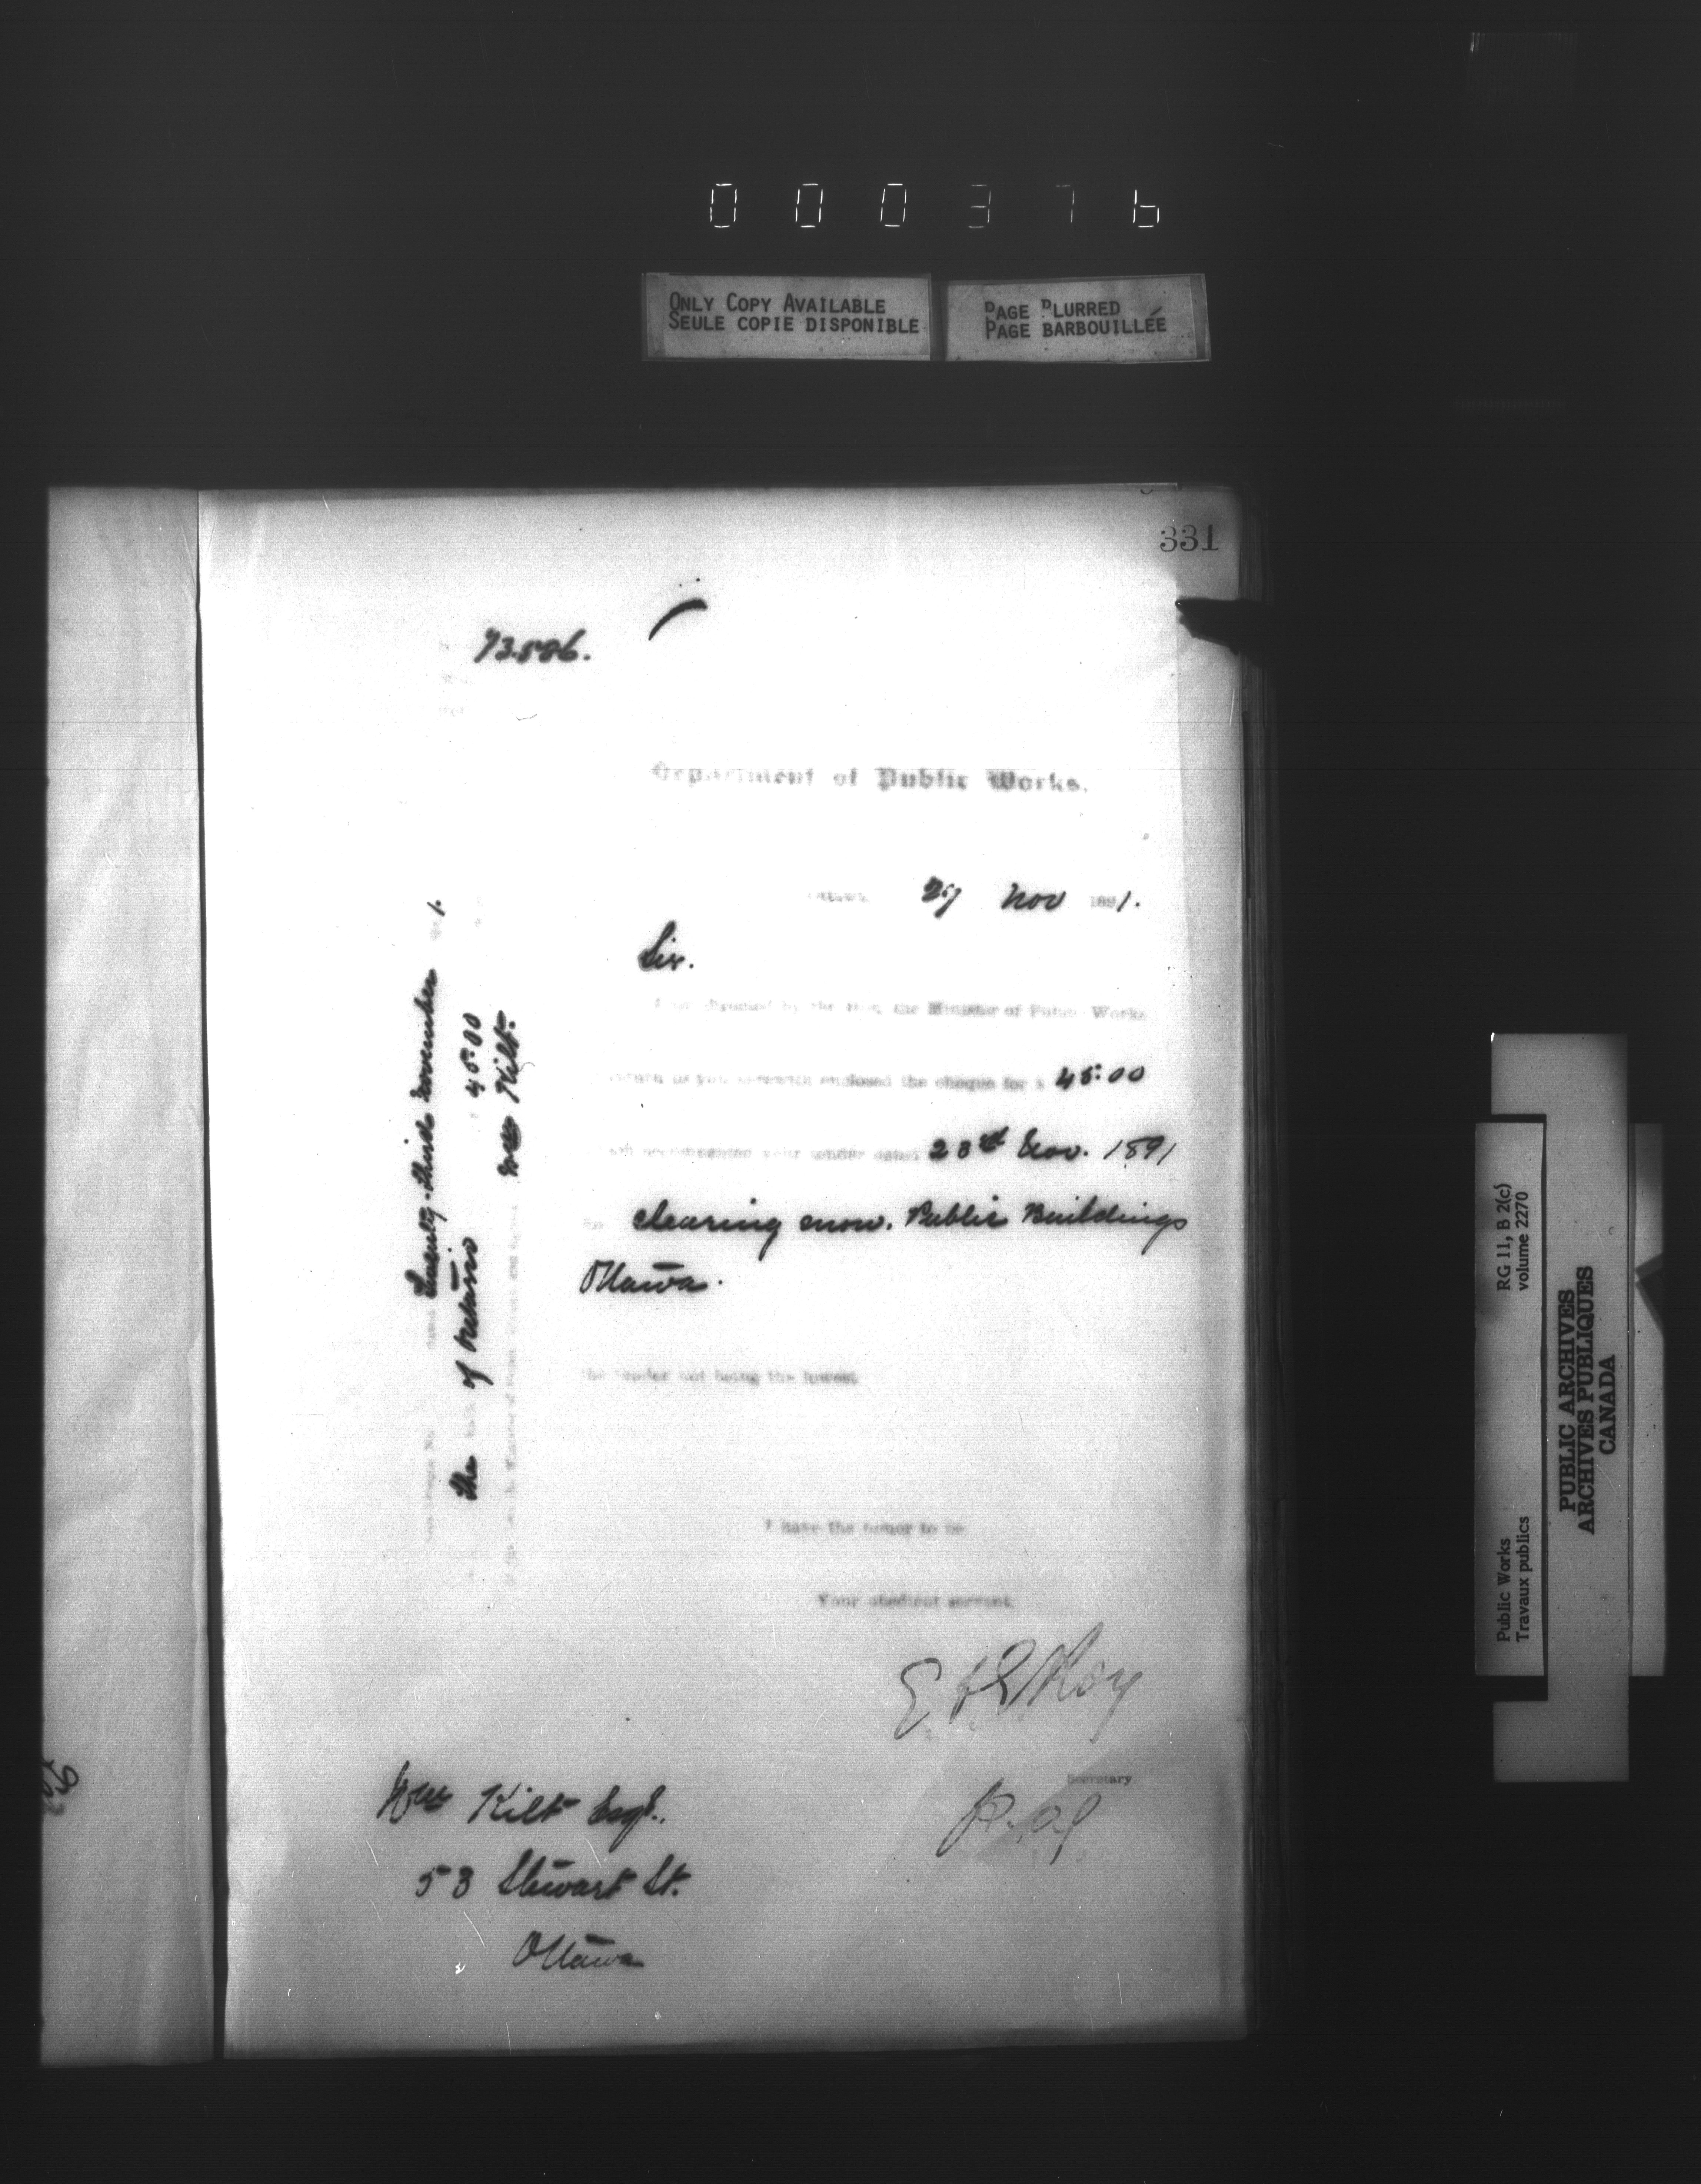 000376
ONLY COPY AVAILABLE
SEULE COPIE DISPONIBLE
PAGE BLURRED
PAGE BARBOUILLÉE
331
73.586.
Department of Public Works.
Ottawa 27 Nov 1891.
Sir.
I am directed by the Hon. the Minister of Public Works
return to you herewith enclosed the cheque for $ 45.00
accompanied your tender dated 23rd Nov. 1891
clearing snow. Public Buildings
Ottawa.
the tender not being the lowest
I have the honor to be
Your obedient servant,
E F E Roy
Secretary
Wm Kilt Esqr.
53 Stewart St.
Ottawa
Twenty-third November 1.
the of Ontario 45.00
Wm Kilt.
Public Works
Travaux publics
RG 11, B 2(c)
volume 2270
PUBLIC ARCHIVES
ARCHIVES PUBLIQUES
CANADA